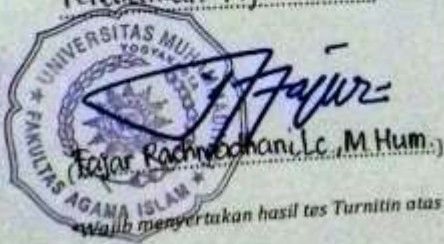 UNIVERSITAS MUH
YOGYAKARTA
FAKULTAS AGAMA ISLAM
Fajar
(Fajar Rachmadhani, Lc., M.Hum.)
*Wajib menyertakan hasil tes Turnitin atas